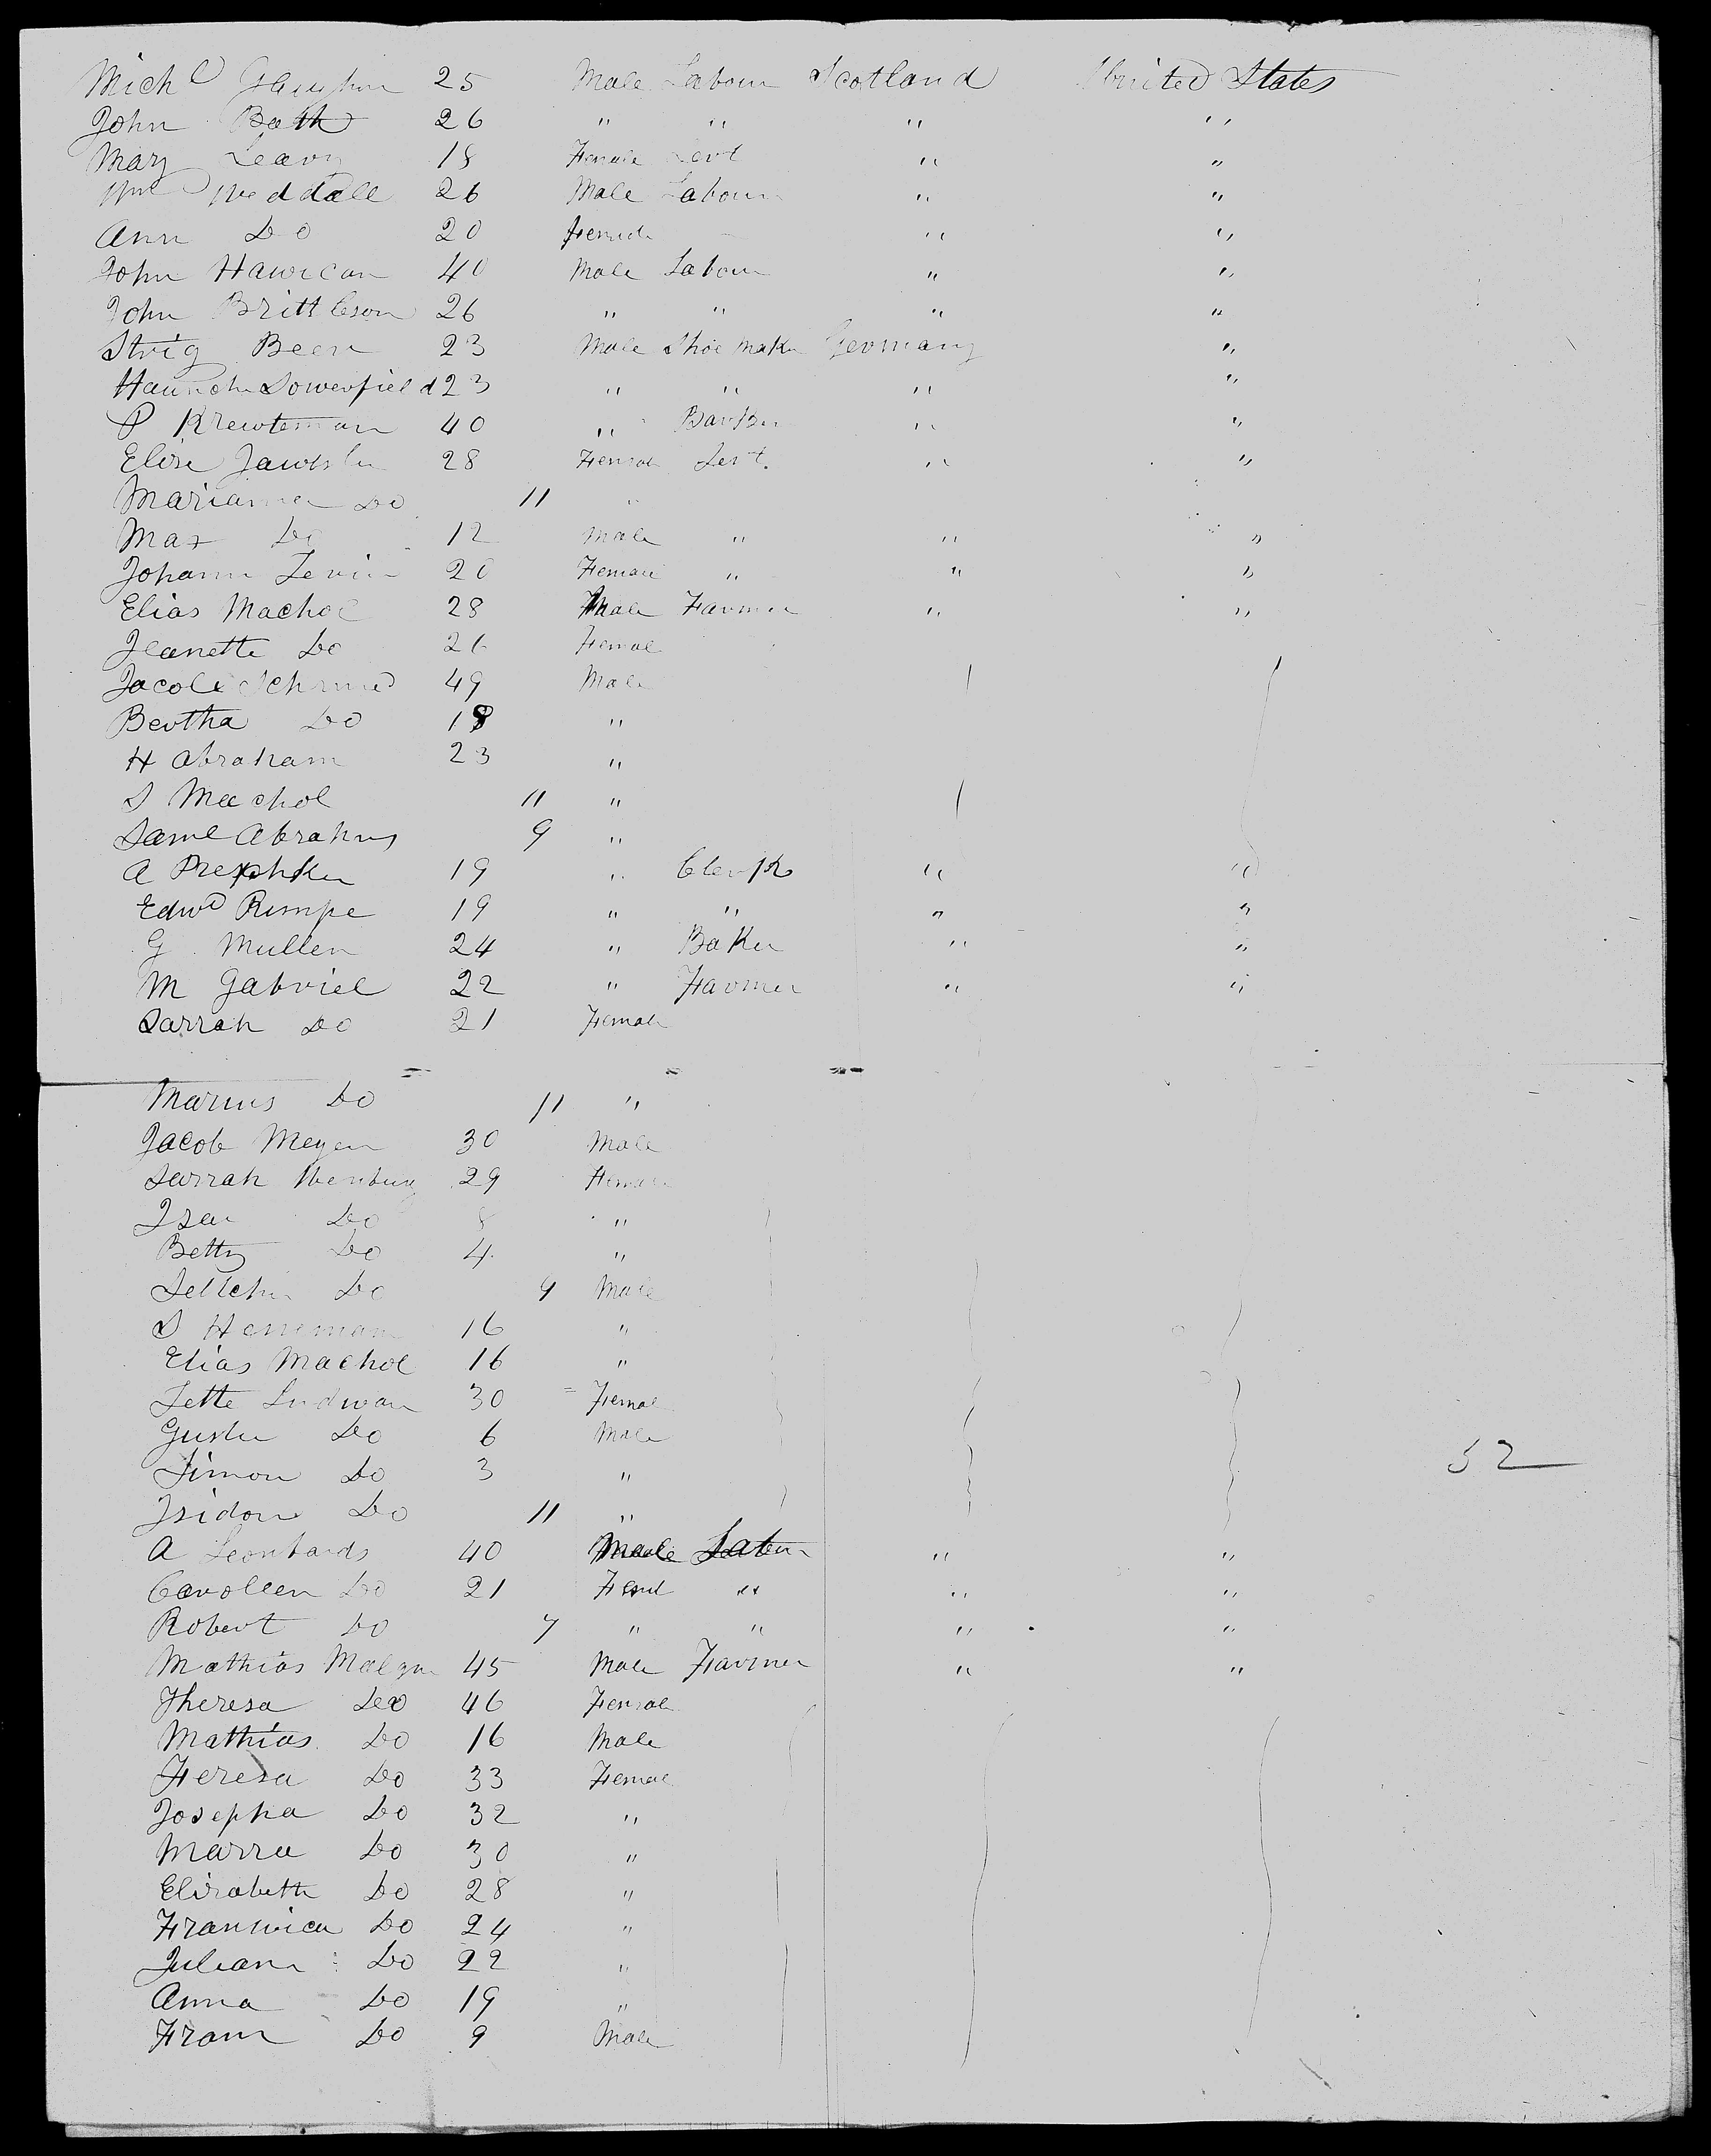 Mich<sup>l</sup> 25 Male Labour Scotland United States
John Bath 26 " " " "
Mary Leavy 18 Female Servt " "
Wm Weddall 26 Male Labour " "
Ann Do 20 Female " "
John Hawican 40 Male Labour " "
John Brittleson 26 " " " "
Strig Beer 23 Male Shoe maker Germany "
Sowerfield 23 " " " "
P Krewteman 40 " " "
Elise 28 Female Servt. " "
Marianna Do 11 "
Max Do 12 Male " " "
Johann Levin 20 Female " " "
Elias Machol 28 Male Farmer " "
Jeanette Do 26 Femal
Jacob 49 Male
Bertha Do 18 "
H Abraham 23 "
S Machol 11 "
Saml Abrahms 9 "
A 19 " Clerk " "
Edwd Rimpe 19 " " " "
G. Mullen 24 " Baker " "
M Gabriel 22 " Farmer " "
Sarrah Do 21 Femal
Marius Do 11 "
Jacob Meyer 30 Male
Sarrah 29 Female
Do 8 "
Betty Do 4 "
Do 9 Male
S Herreman 16 "
Elias Machol 16 "
Lette Ludwan 30 Femal
Do 6 Male
Simon Do 3 " 52
Isidor Do 11 "
A Leonhards 40 Male Labour " "
Carolien Do 21 Feml " " "
Robert Do 7 " " " "
Mathias 45 Male Farmer " "
Theresa Do 46 Femal
Mathias Do 16 Male
Feresa Do 33 Femal
Josepha Do 32 "
Marra Do 30 "
Elizabeth Do 28 "
Do 24 "
Juliann Do 22 "
Anna Do 19 "
Do 9 Male